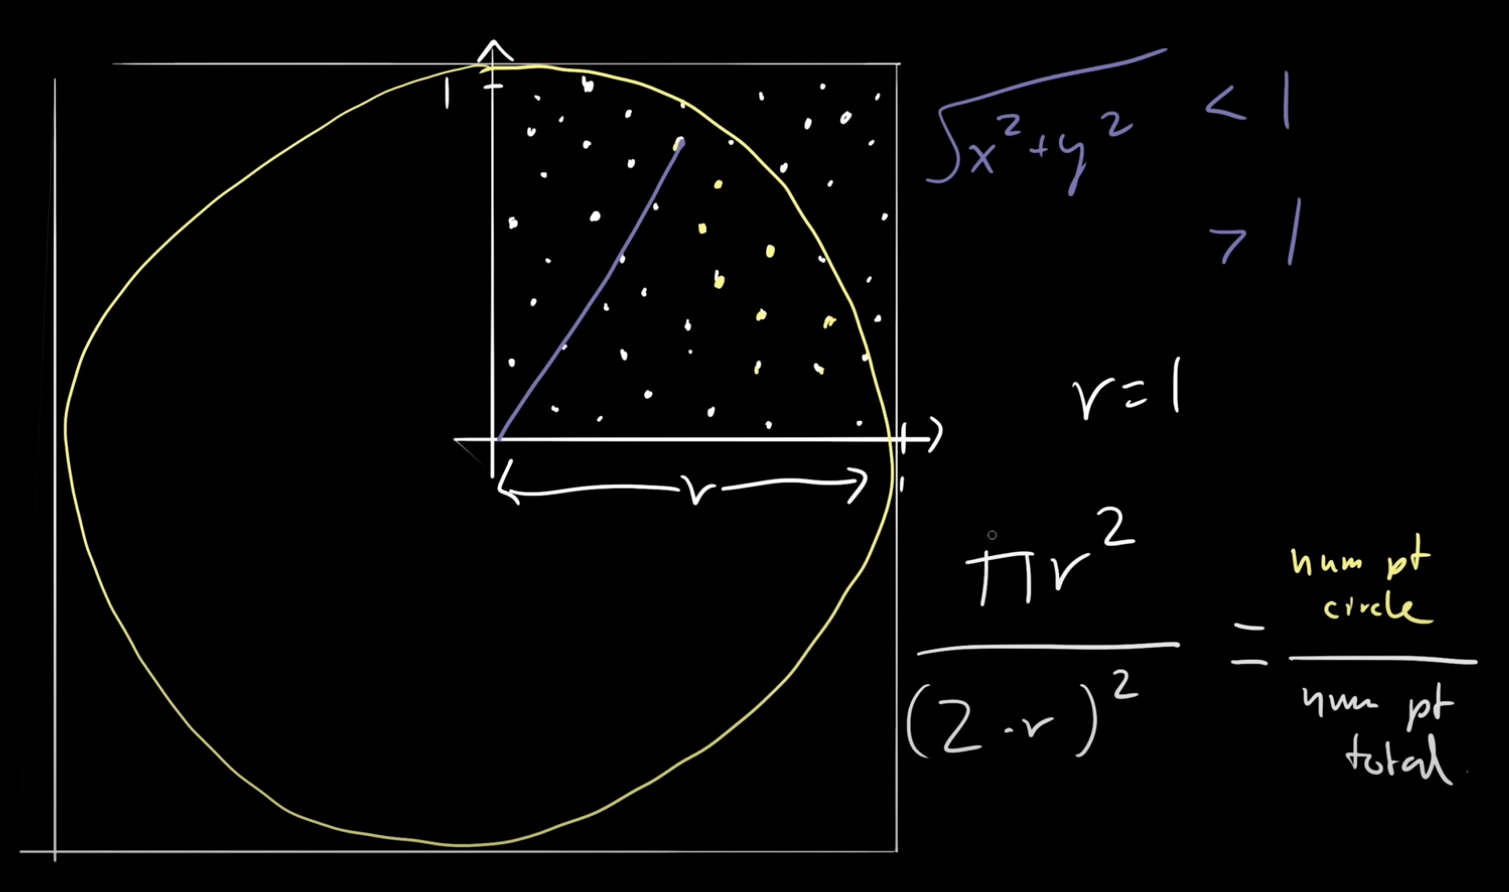 1
√x²+y² < 1
> 1
r=1
1
r
πr²
(2·r)²
=
num pt
circle
num pt
total